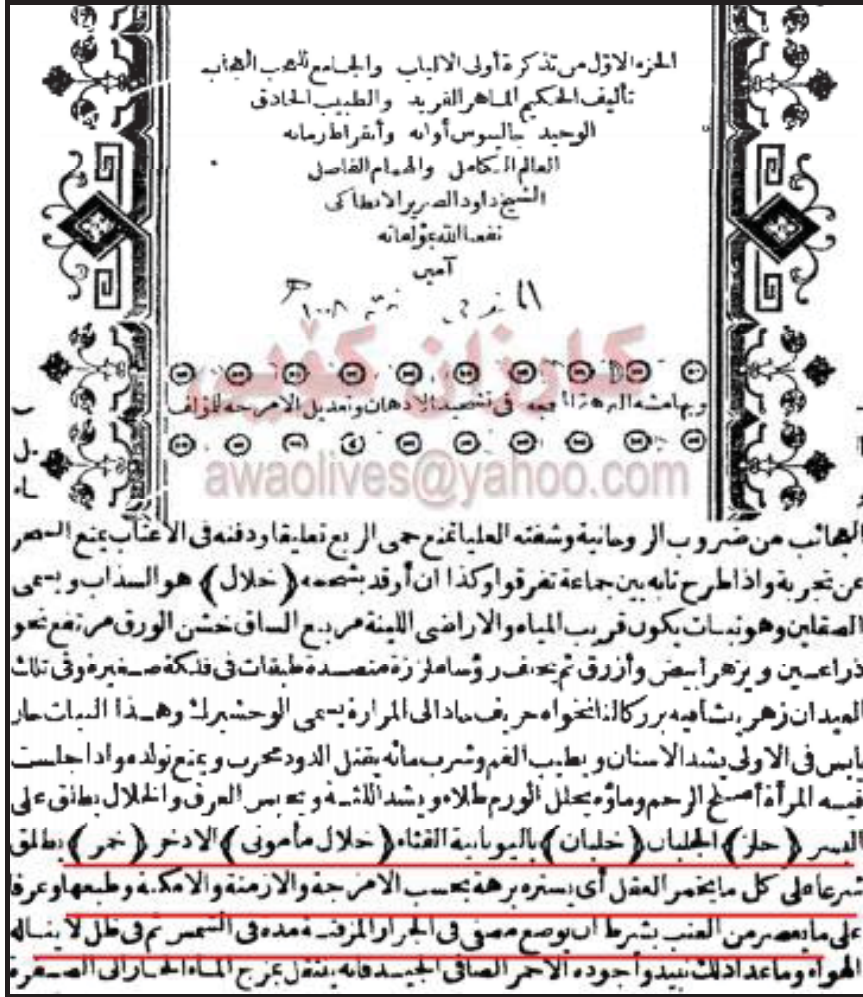 الجزء الاول من تذكرة أولى الالباب والجامع للعجب العجاب
تأليف الحكيم الماهر الفريد والطبيب الحاذق
الوحيد جالينوس أوانه وأبقراط زمانه
العالم الكامل والهمام الفاضل
الشيخ داود الضرير الانطاكى
نفعنا الله بمؤلفاته
آمين
كارزان كۆيى
وبهامشه النزهة المبهجة فى تشحيذ الاذهان وتعديل الامزجة للمؤلف
awaolives@yahoo.com
العجائب من ضروب الروحانية وشفته العليا تمنع حمى الربع تعليقا ودفنه فى الاعتاب يمنع السحر
عن تجربة واذا طرح نابه بين جماعة تفرقوا وكذا ان أوقد بشحمه (خلال) هو السذاب ويسمى
الصقلين وهو نبات يكون قريب المياه والاراضى اللينة مربع الساق خشن الورق مرتفع نحو
ذراعين ويزهر أبيض وأزرق ثم يخلف رؤسا ملززة منضدة طبقات فى فلكة صغيرة وفى تلك
العيدان زهر بشاهيه بزر كالنانخواه حريف حاد الى المرارة يسمى الوحشيرك وهذا النبات حار
يابس فى الاولى يشد الاسنان ويطيب الفم وشرب مائه يقتل الدود مجرب ويمنع تولده واذا جلست
فيه المرأة أصلح الرحم وماؤه يحلل الورم طلاء ويشد اللثة ويحبس العرق والخلال يطلق على
البسر (خلز) الجلبان (خلبان) باليونانية القثاء (خلال مأمونى) الاذخر (خمر) يطلق
شرعا على كل ما يخمر العقل أى يستره برهة بحسب الامزجة والازمنة والامكنة وطبعها وعرفا
على ما يعصر من العنب بشرط أن يوضع مصفى فى الجرار المزفتة مدة فى الشمس ثم فى ظل لا يناله
الهواء وما عدا ذلك نبيذ وأجوده الاحمر الصافى الجيد فانه ينتقل بمزج الماء الحار الى الصفرة